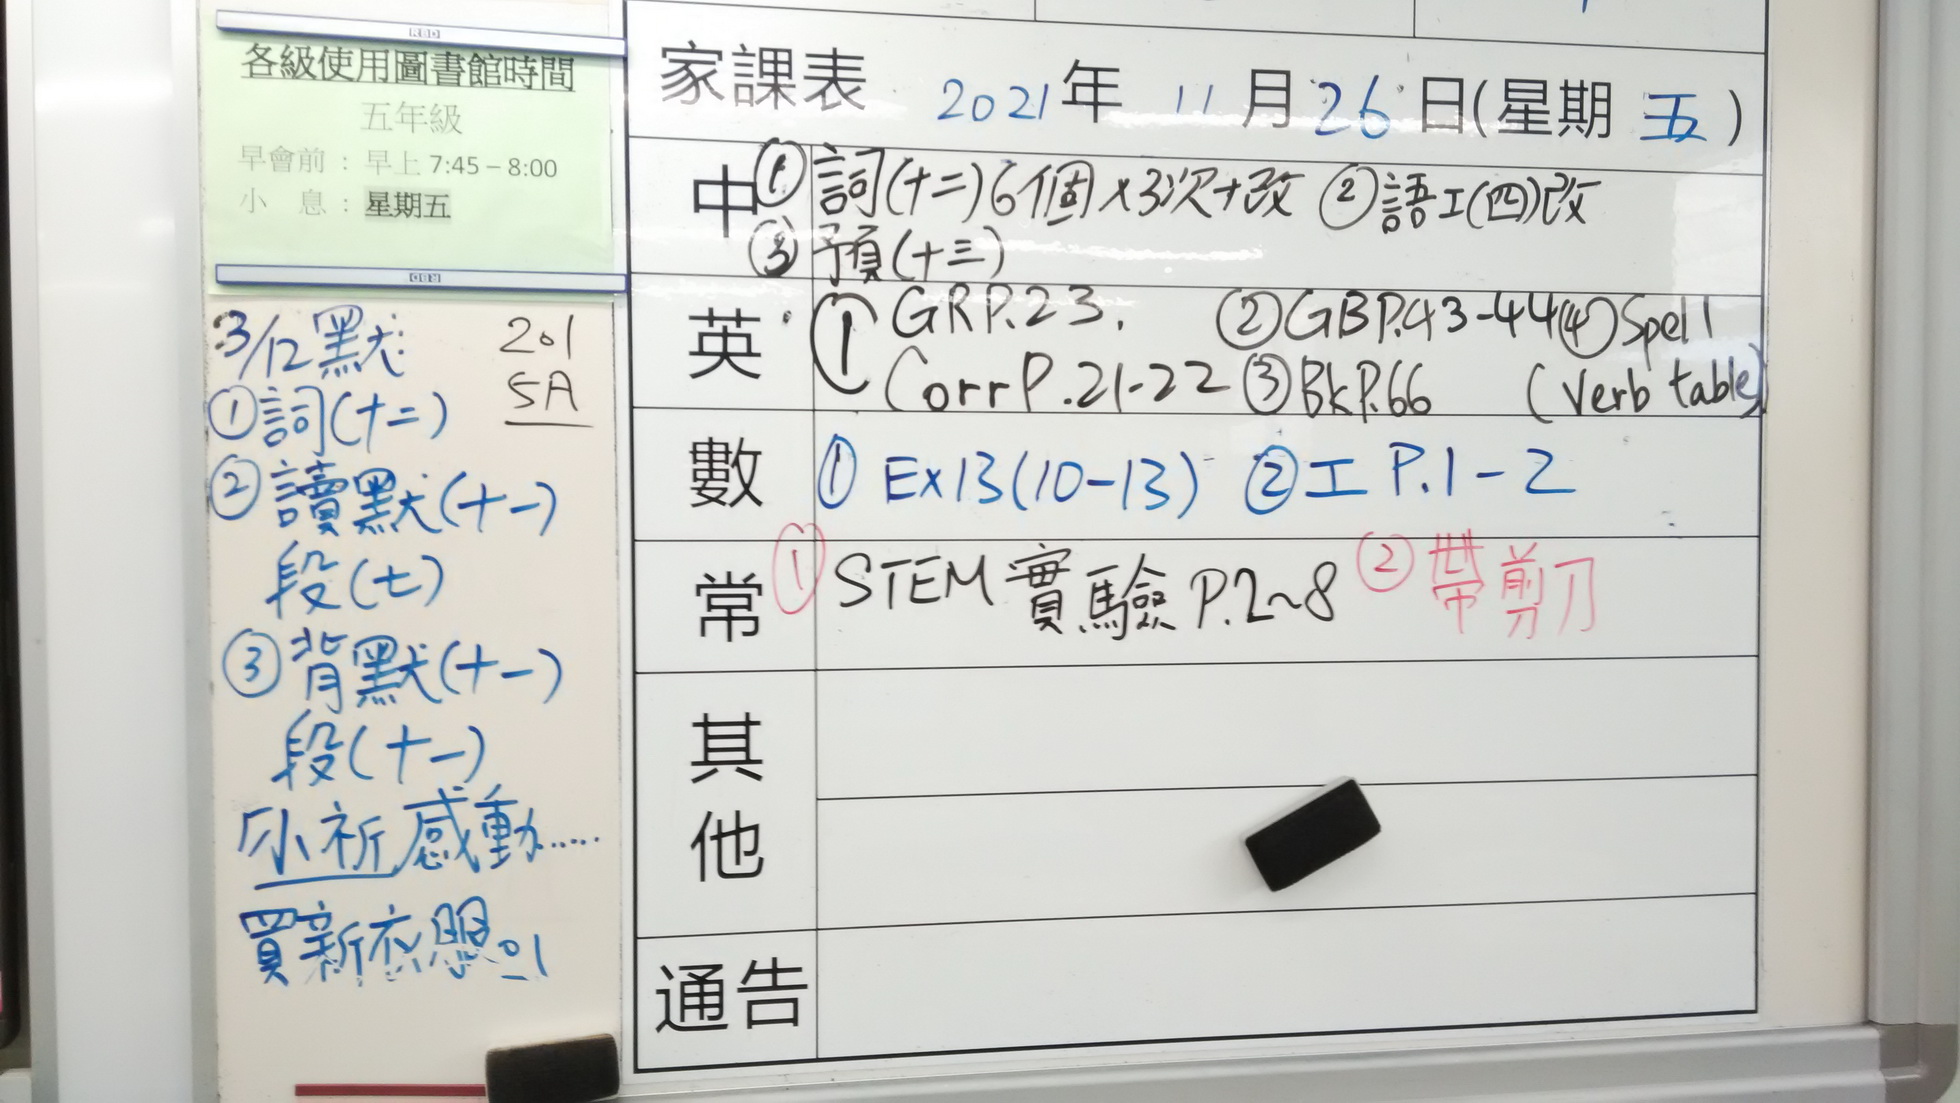 各級使用圖書館時間
五年級
早會前：早上 7:45 – 8:00
小 息：星期五
3/12默
201
5A
①詞(十二)
②讀默(十一)
段(七)
③背默(十一)
段(十一)
「小祈感動.....
買新衣服。」
家課表 2021年 11月26日(星期 五)
中 ①詞(十二)6個×3次+改 ②語工(四)改
③預(十三)
英 ① GRP.23. ②GBP.43-44 ④Spell
CorrP.21-22 ③BkP.66 (Verb table)
數 ① Ex13(10-13) ②工 P.1-2
常 ① STEM實驗 P.2~8 ②帶剪刀
其他
通告